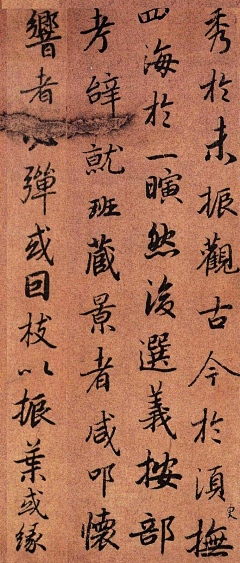 秀於未振觀古今於須臾撫
四海於一瞚然後選義按部
考辭就班藏景者咸叩懷
響者必彈或因枝以振葉或緣